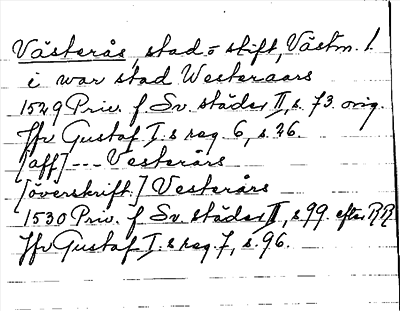 Västerås, stad o stift, Västm. l.
i war stad Westeraars
1529 Priv. f Sv. städer II, s. 73. orig.
Jfr Gustaf I:s reg. 6, s. 26.
[aff] --- Vesterårs
[överskrift.] Vesterårs
1530 Priv. f Sv. städer II, s. 99. efter RR
Jfr Gustaf I:s reg 7, s. 96.